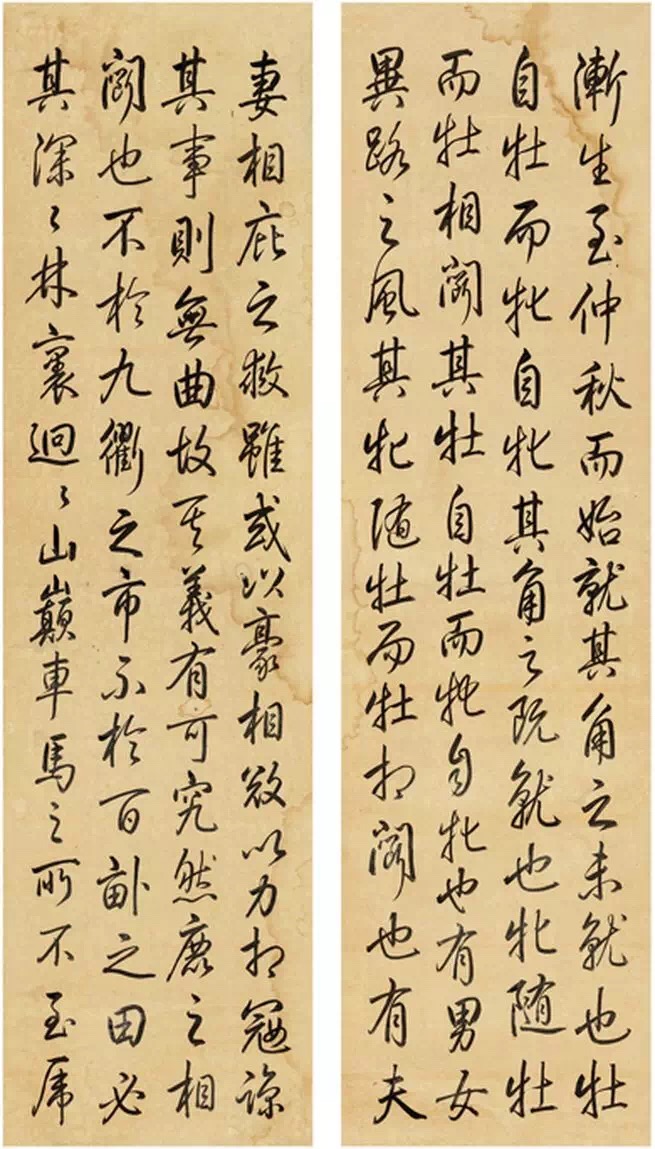 漸生至仲秋而始就其角之未就也牡
自牡而牝自牝其角之既就也牝随牡
而牡相鬥其牡自牡而牝自牝也有男女
異路之風其牝随牡而牡相鬥也有夫
妻相庇之救雖或以豪相欺以力相寇諒
其事則無曲故其義有可究然鹿之相
鬥也不於九衢之市不於百畝之田必
其深々林裏迴々山巔車馬之所不至